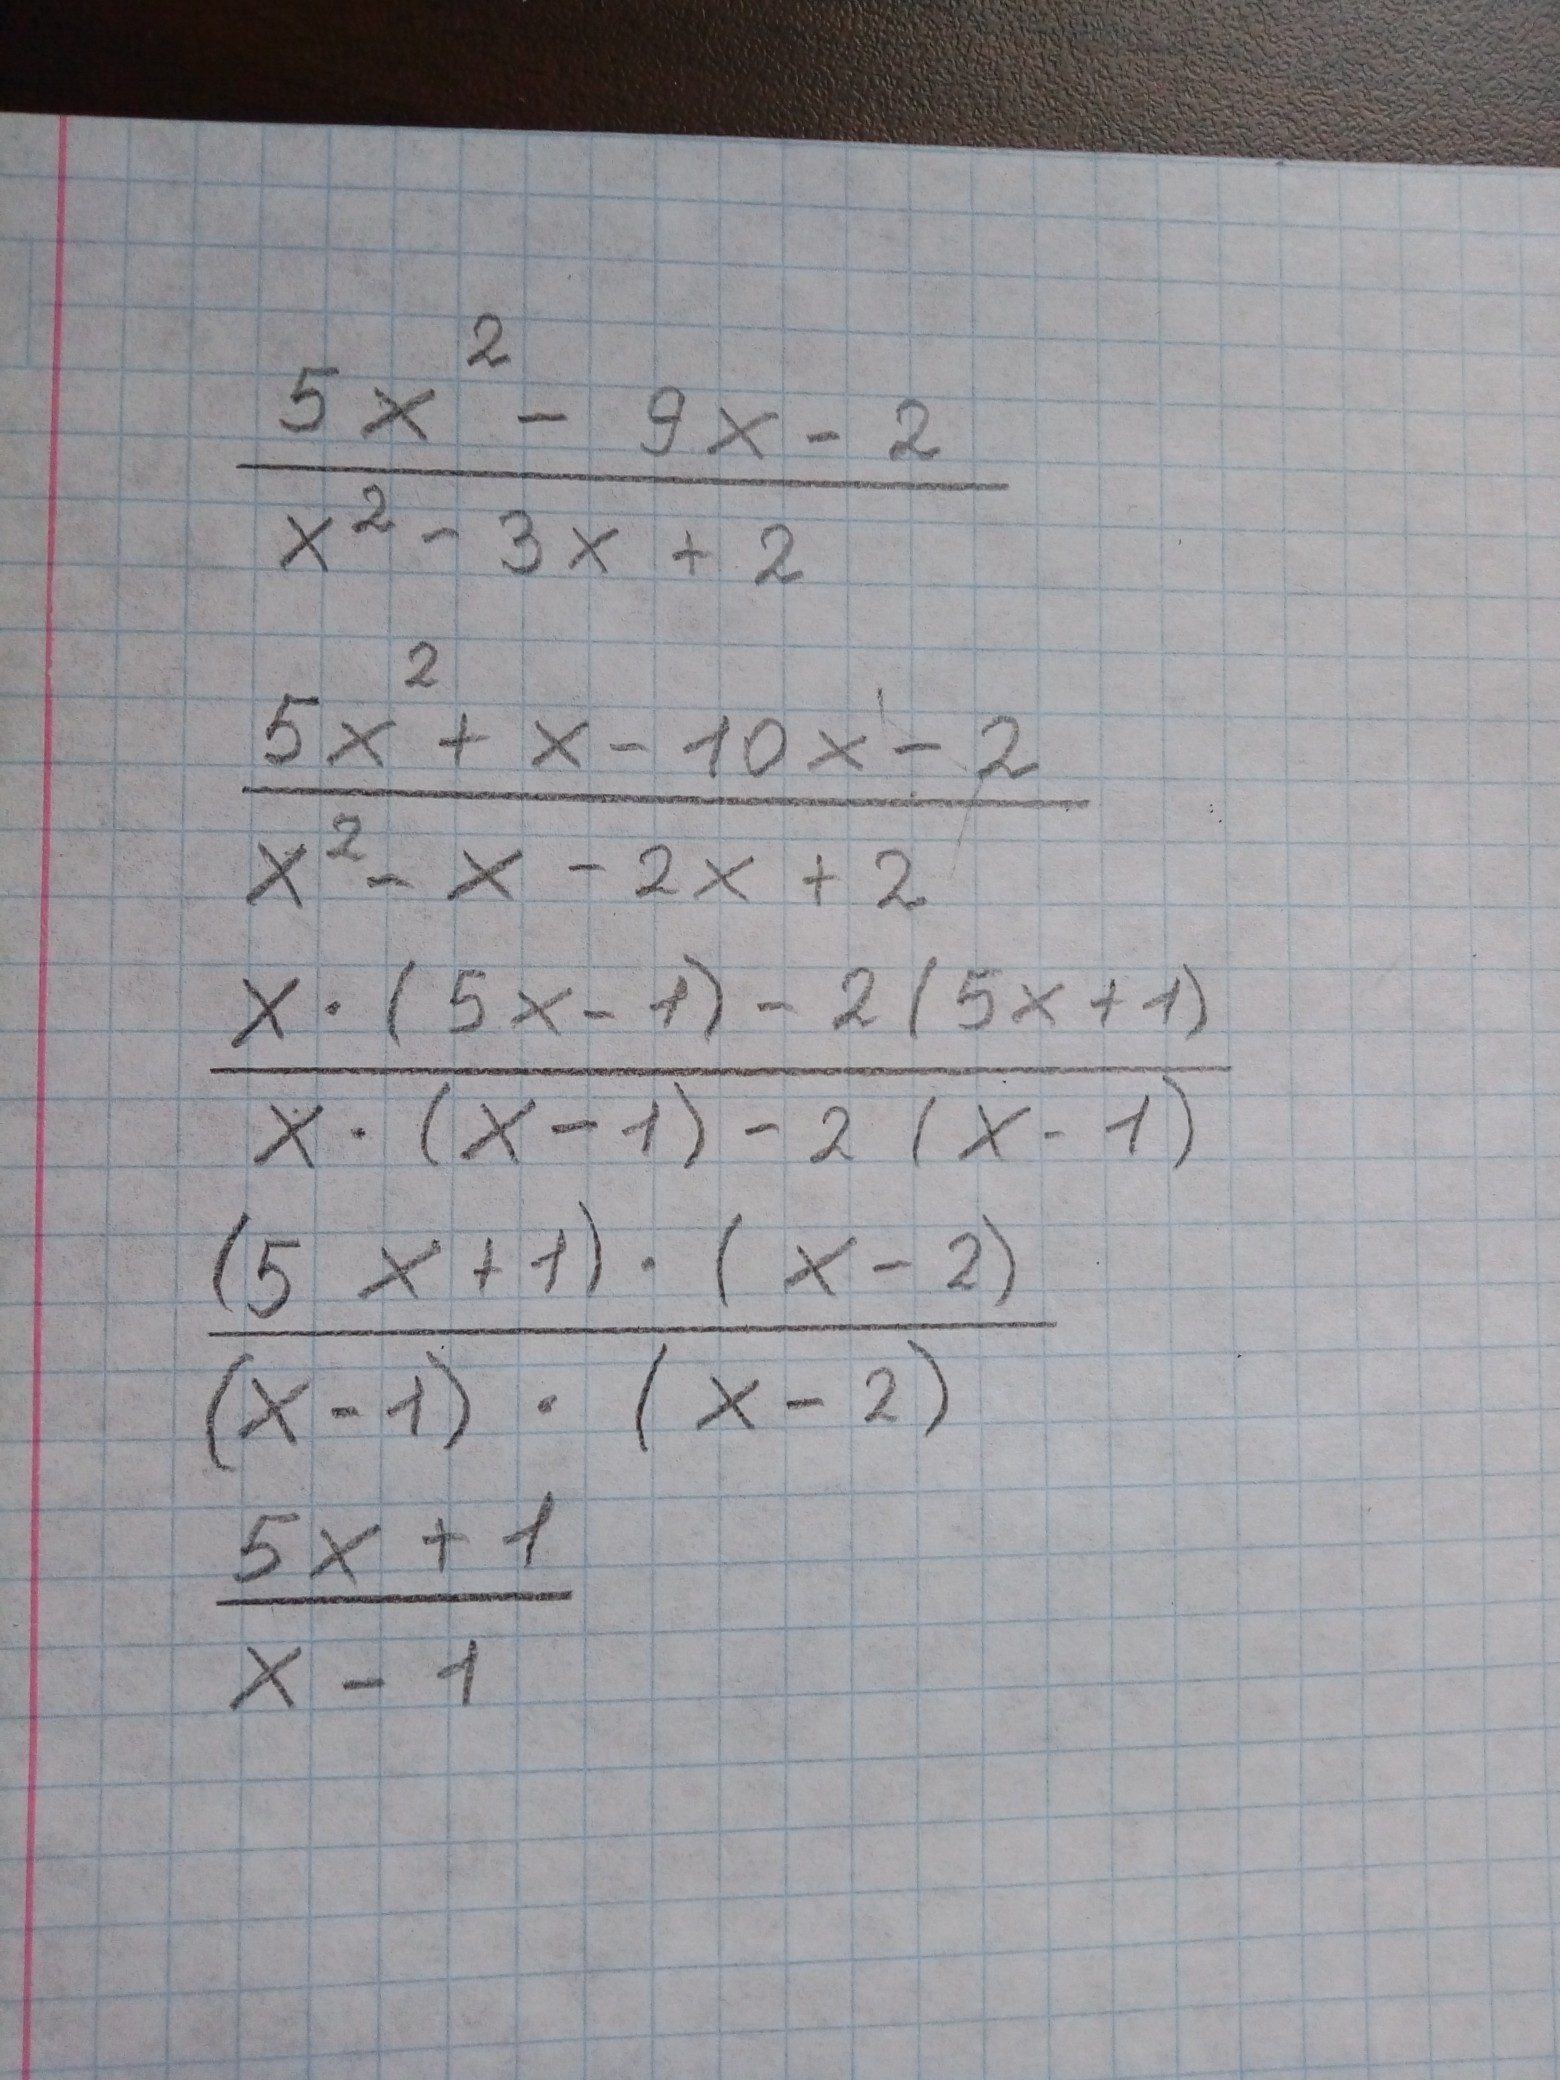 5x² - 9x - 2
x² - 3x + 2
5x² + x - 10x - 2
x² - x - 2x + 2
x · (5x - 1) - 2(5x + 1)
x · (x - 1) - 2(x - 1)
(5x + 1) · (x - 2)
(x - 1) · (x - 2)
5x + 1
x - 1